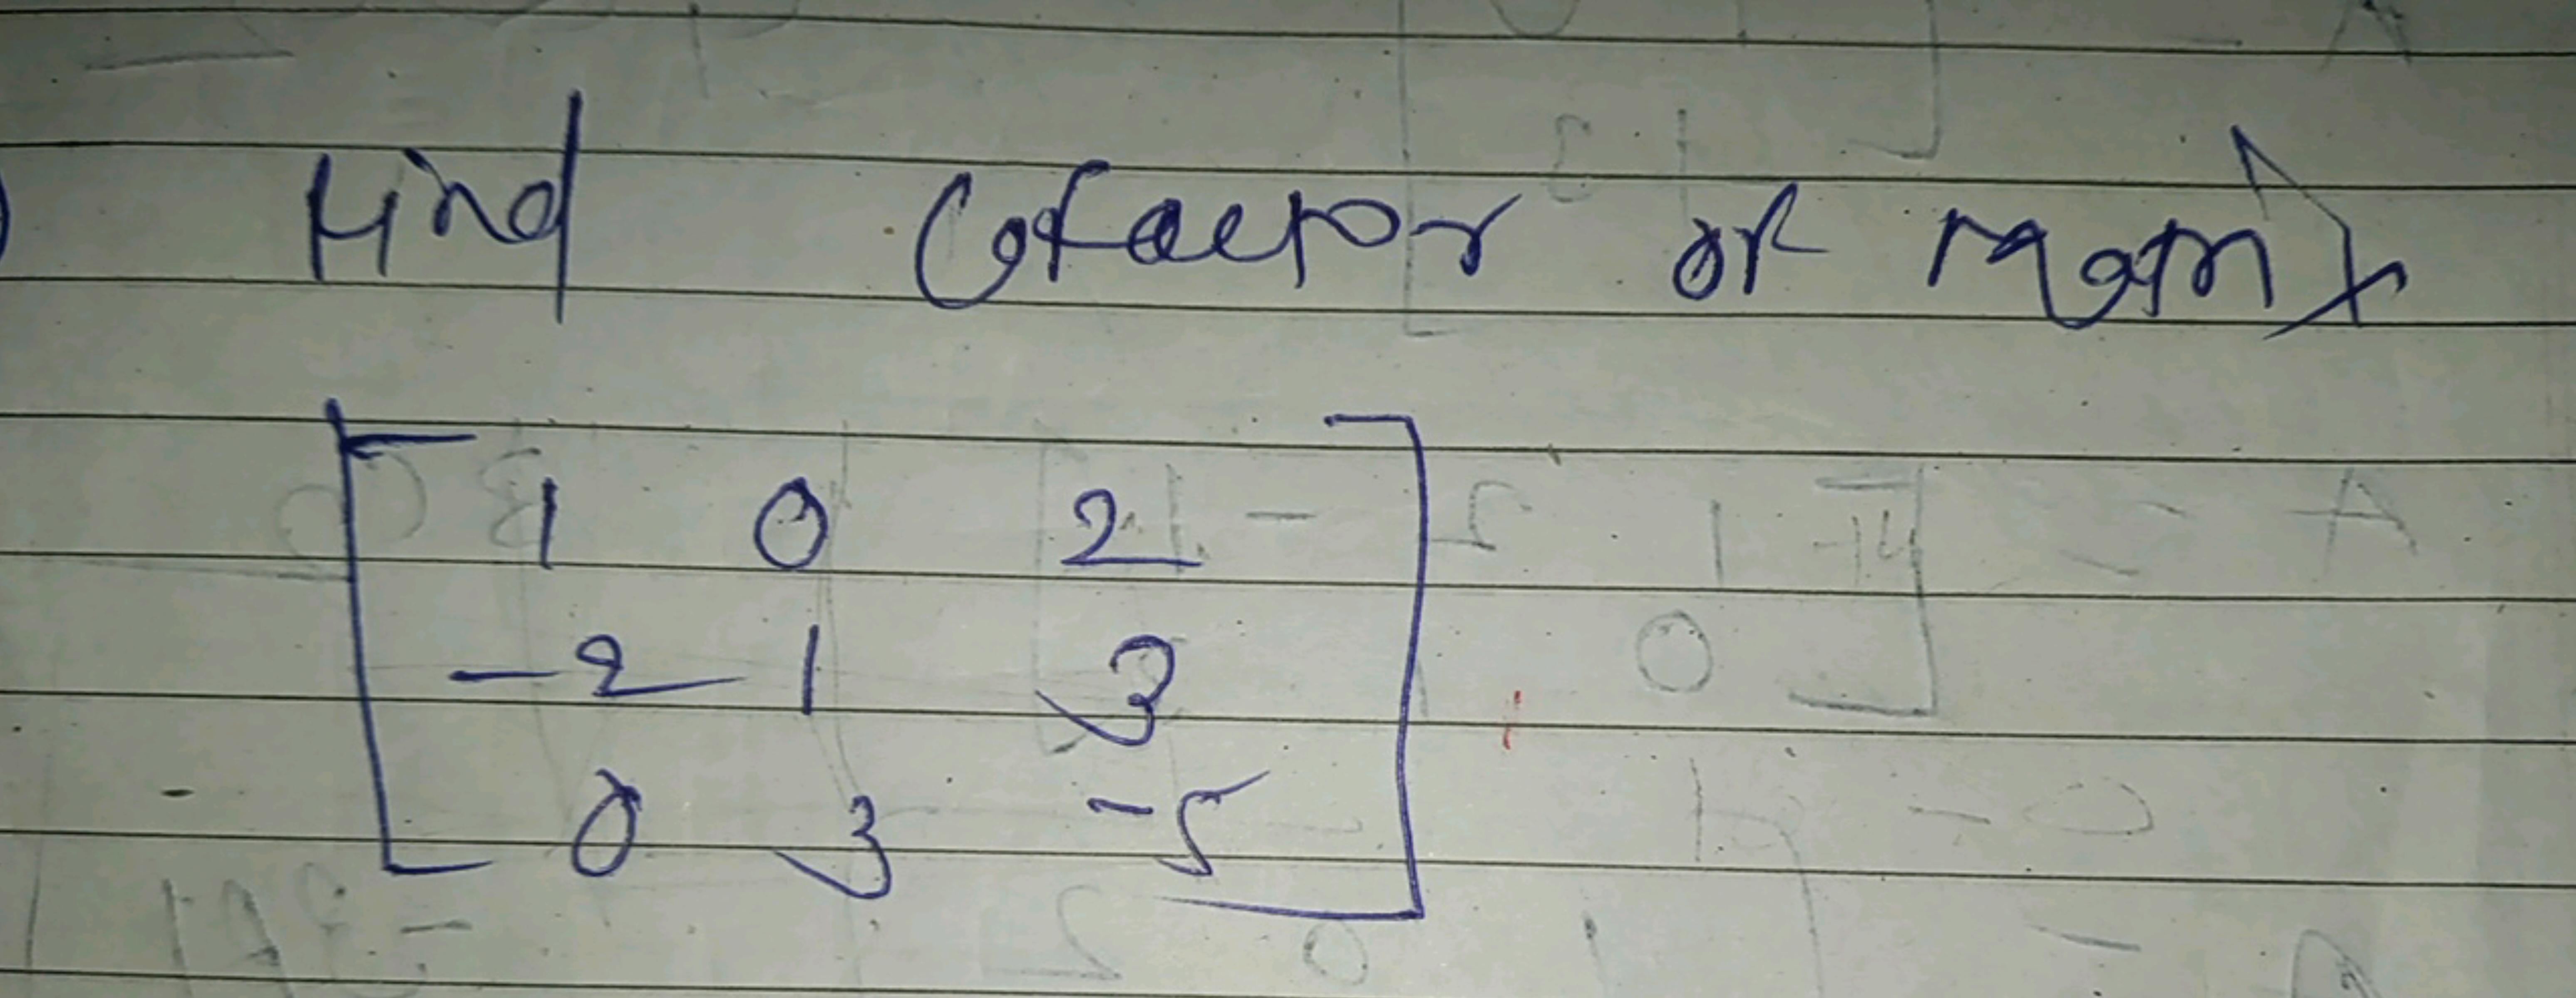 Find Cofactor of Matrix
1 0 2
-2 1 3
0 3 -5